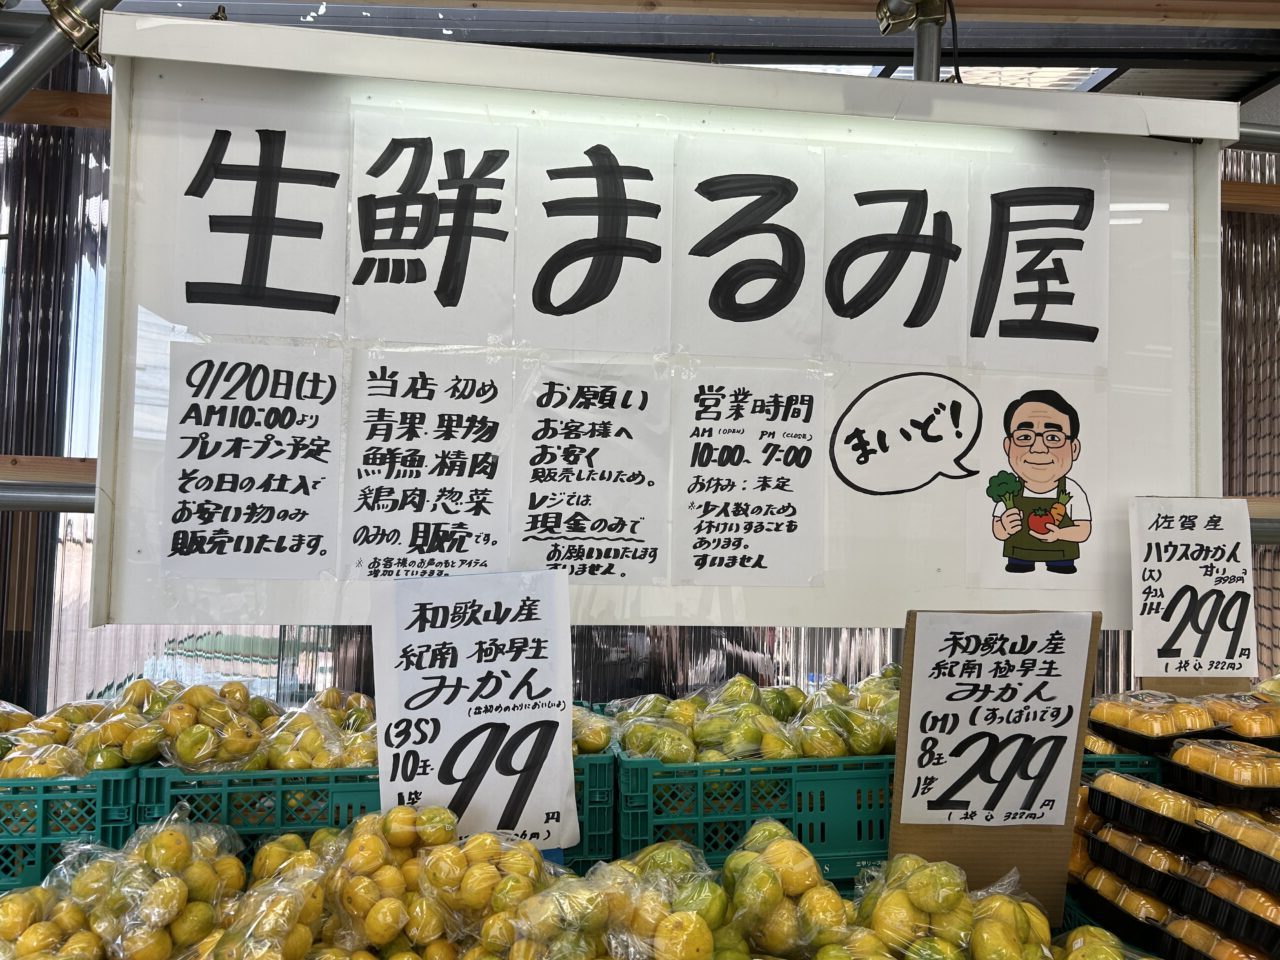 生鮮まるみ屋
9/20日(土)
AM10:00より
プレオープン予定
その日の仕入で
お安い物のみ
販売いたします。
当店初め
青果・果物
鮮魚・精肉
鶏肉・惣菜
のみの、販売です。
※お客様のお声のもとアイテム
増加していきます。
お願い
お客様へ
お安く
販売したいため。
レジでは、
現金のみで
お願いいたします
すいません。
営業時間
AM(OPEN) PM(CLOSE)
10:00〜7:00
お休み:未定
※少人数のため
休けいすることも
あります。
すいません
まいど!
佐賀産
ハウスみかん
甘い
398円
(大)
4コ入
299円
(税込322円)
和歌山産
紀南 極早生
みかん
(3S)
10玉
1袋
99円
和歌山産
紀南 極早生
みかん
(M)(すっぱいです)
8玉
1袋
299円
(税込322円)